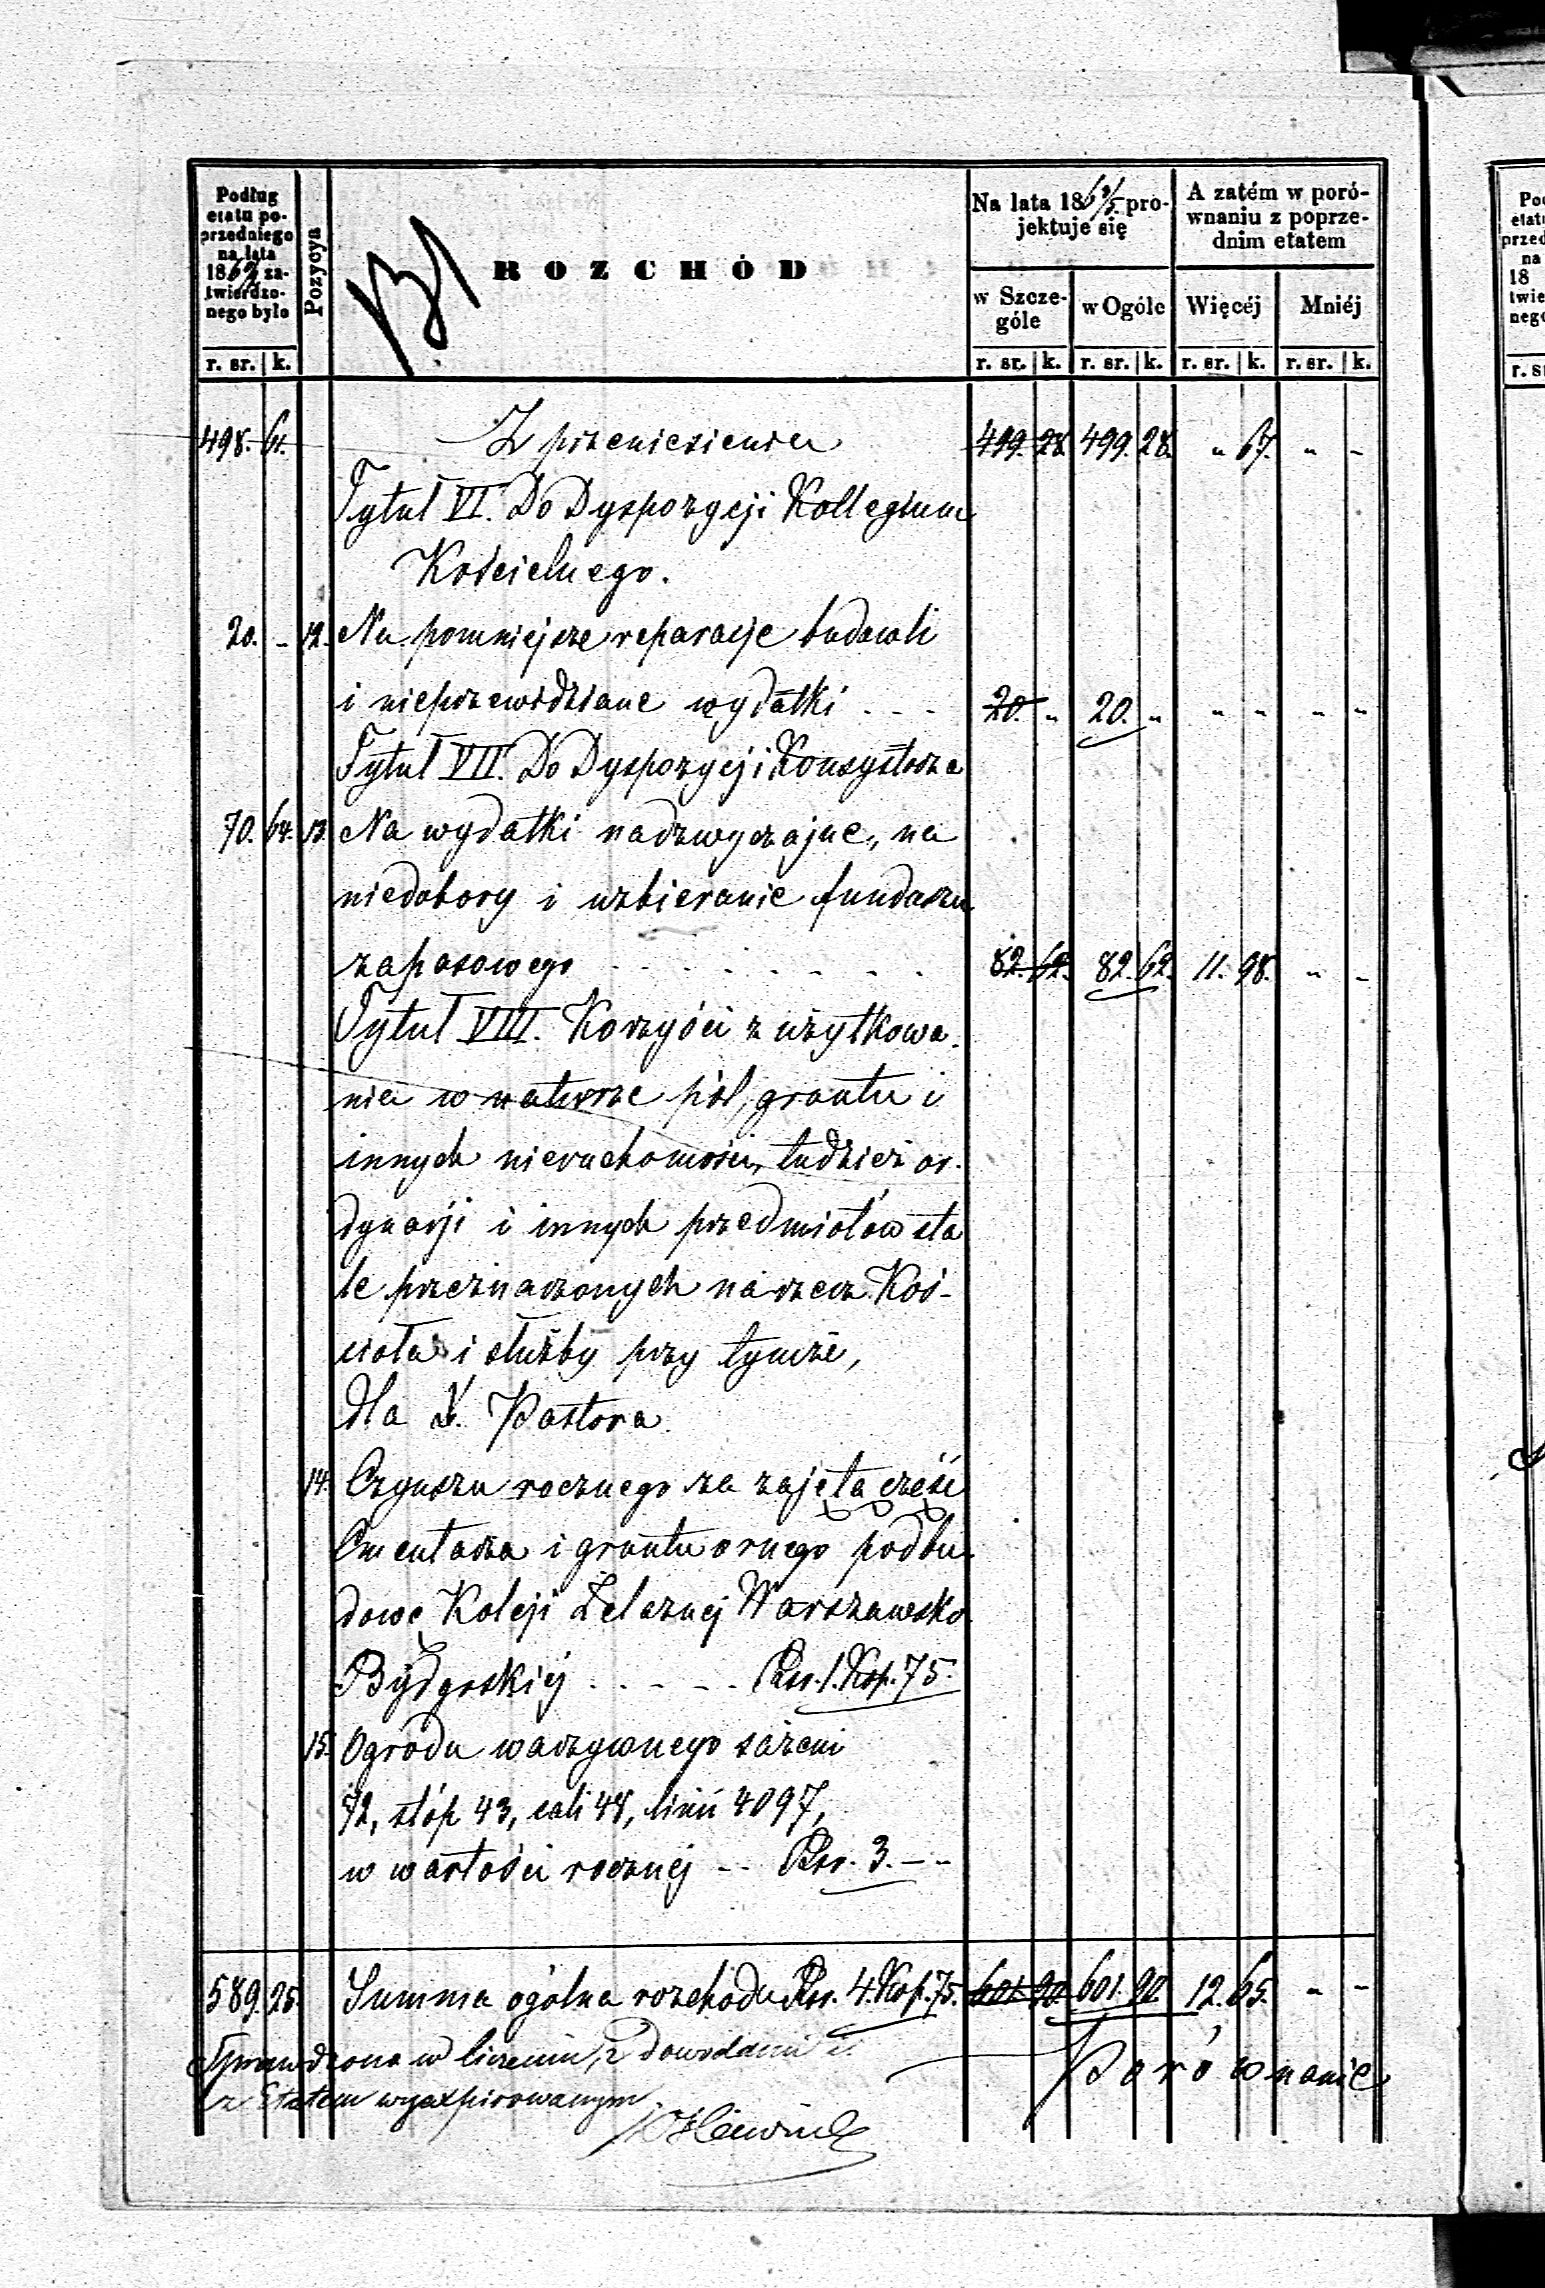 Podług etatu poprzedniego na lata 186 zatwierdzonego było
r. sr. | k.
Pozycya
ROZCHÓD
Na lata 186 projektuje się
w Szczególe
r. sr. | k.
w Ogóle
r. sr. | k.
A zatém w porównaniu z poprzednim etatem
Więcéj
r. sr. | k.
Mniéj
r. sr. | k.
498. 61. Z przeniesienia 499. 28. 499. 28. " 67. " -
Tytuł VI. Do Dyspozycji Kollegium
Kościelnego.
20. - 12. Na pomniejsze reparacje budowli
i nieprzewidziane wydatki - - - 20. " 20. " " - " "
Tytuł VII. Do Dyspozycji Konsystorza
70. 64. 13. Na wydatki nadzwyczajne, na
niedobory i uzbieranie funduszu
zapasowego - - - - - - - - 82. 62. 82. 62. 11. 98. " -
Tytuł VIII. Korzyści z użytkowa-
nia w naturze pól, gruntu i
innych nieruchomości, tudzież or-
dynarji i innych przedmiotów sta
le przeznaczonych na rzecz Koś-
cioła i służby przy tymże,
dla X. Pastora.
14. Czynszu rocznego za zajętą część
Cmentarza i gruntu ornego pod bu-
dowę Koleji Żelaznej Warszawsko
Bydgoskiej - - - - - Rsr. 1. Kop. 75.
15. Ogrodu warzywnego sążeni
72, stóp 43, cali 48, linii 4097,
w wartości rocznej - - Rsr. 3. - -
589. 25. Summa ogólna rozchodu Rsr. 4. Kop. 75. 601. 90. 601. 90 12. 65. " -
Sprawdzono w liczeniu, z dowodami i
z Etatem wyexpirowanym
Porównanie
Po
etatu
przed
na
18
twie
neg
r. s